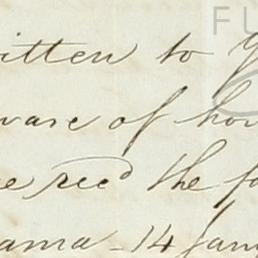 FU
itten to Y
ware of how
e recd the fo
ama - 14 Jan